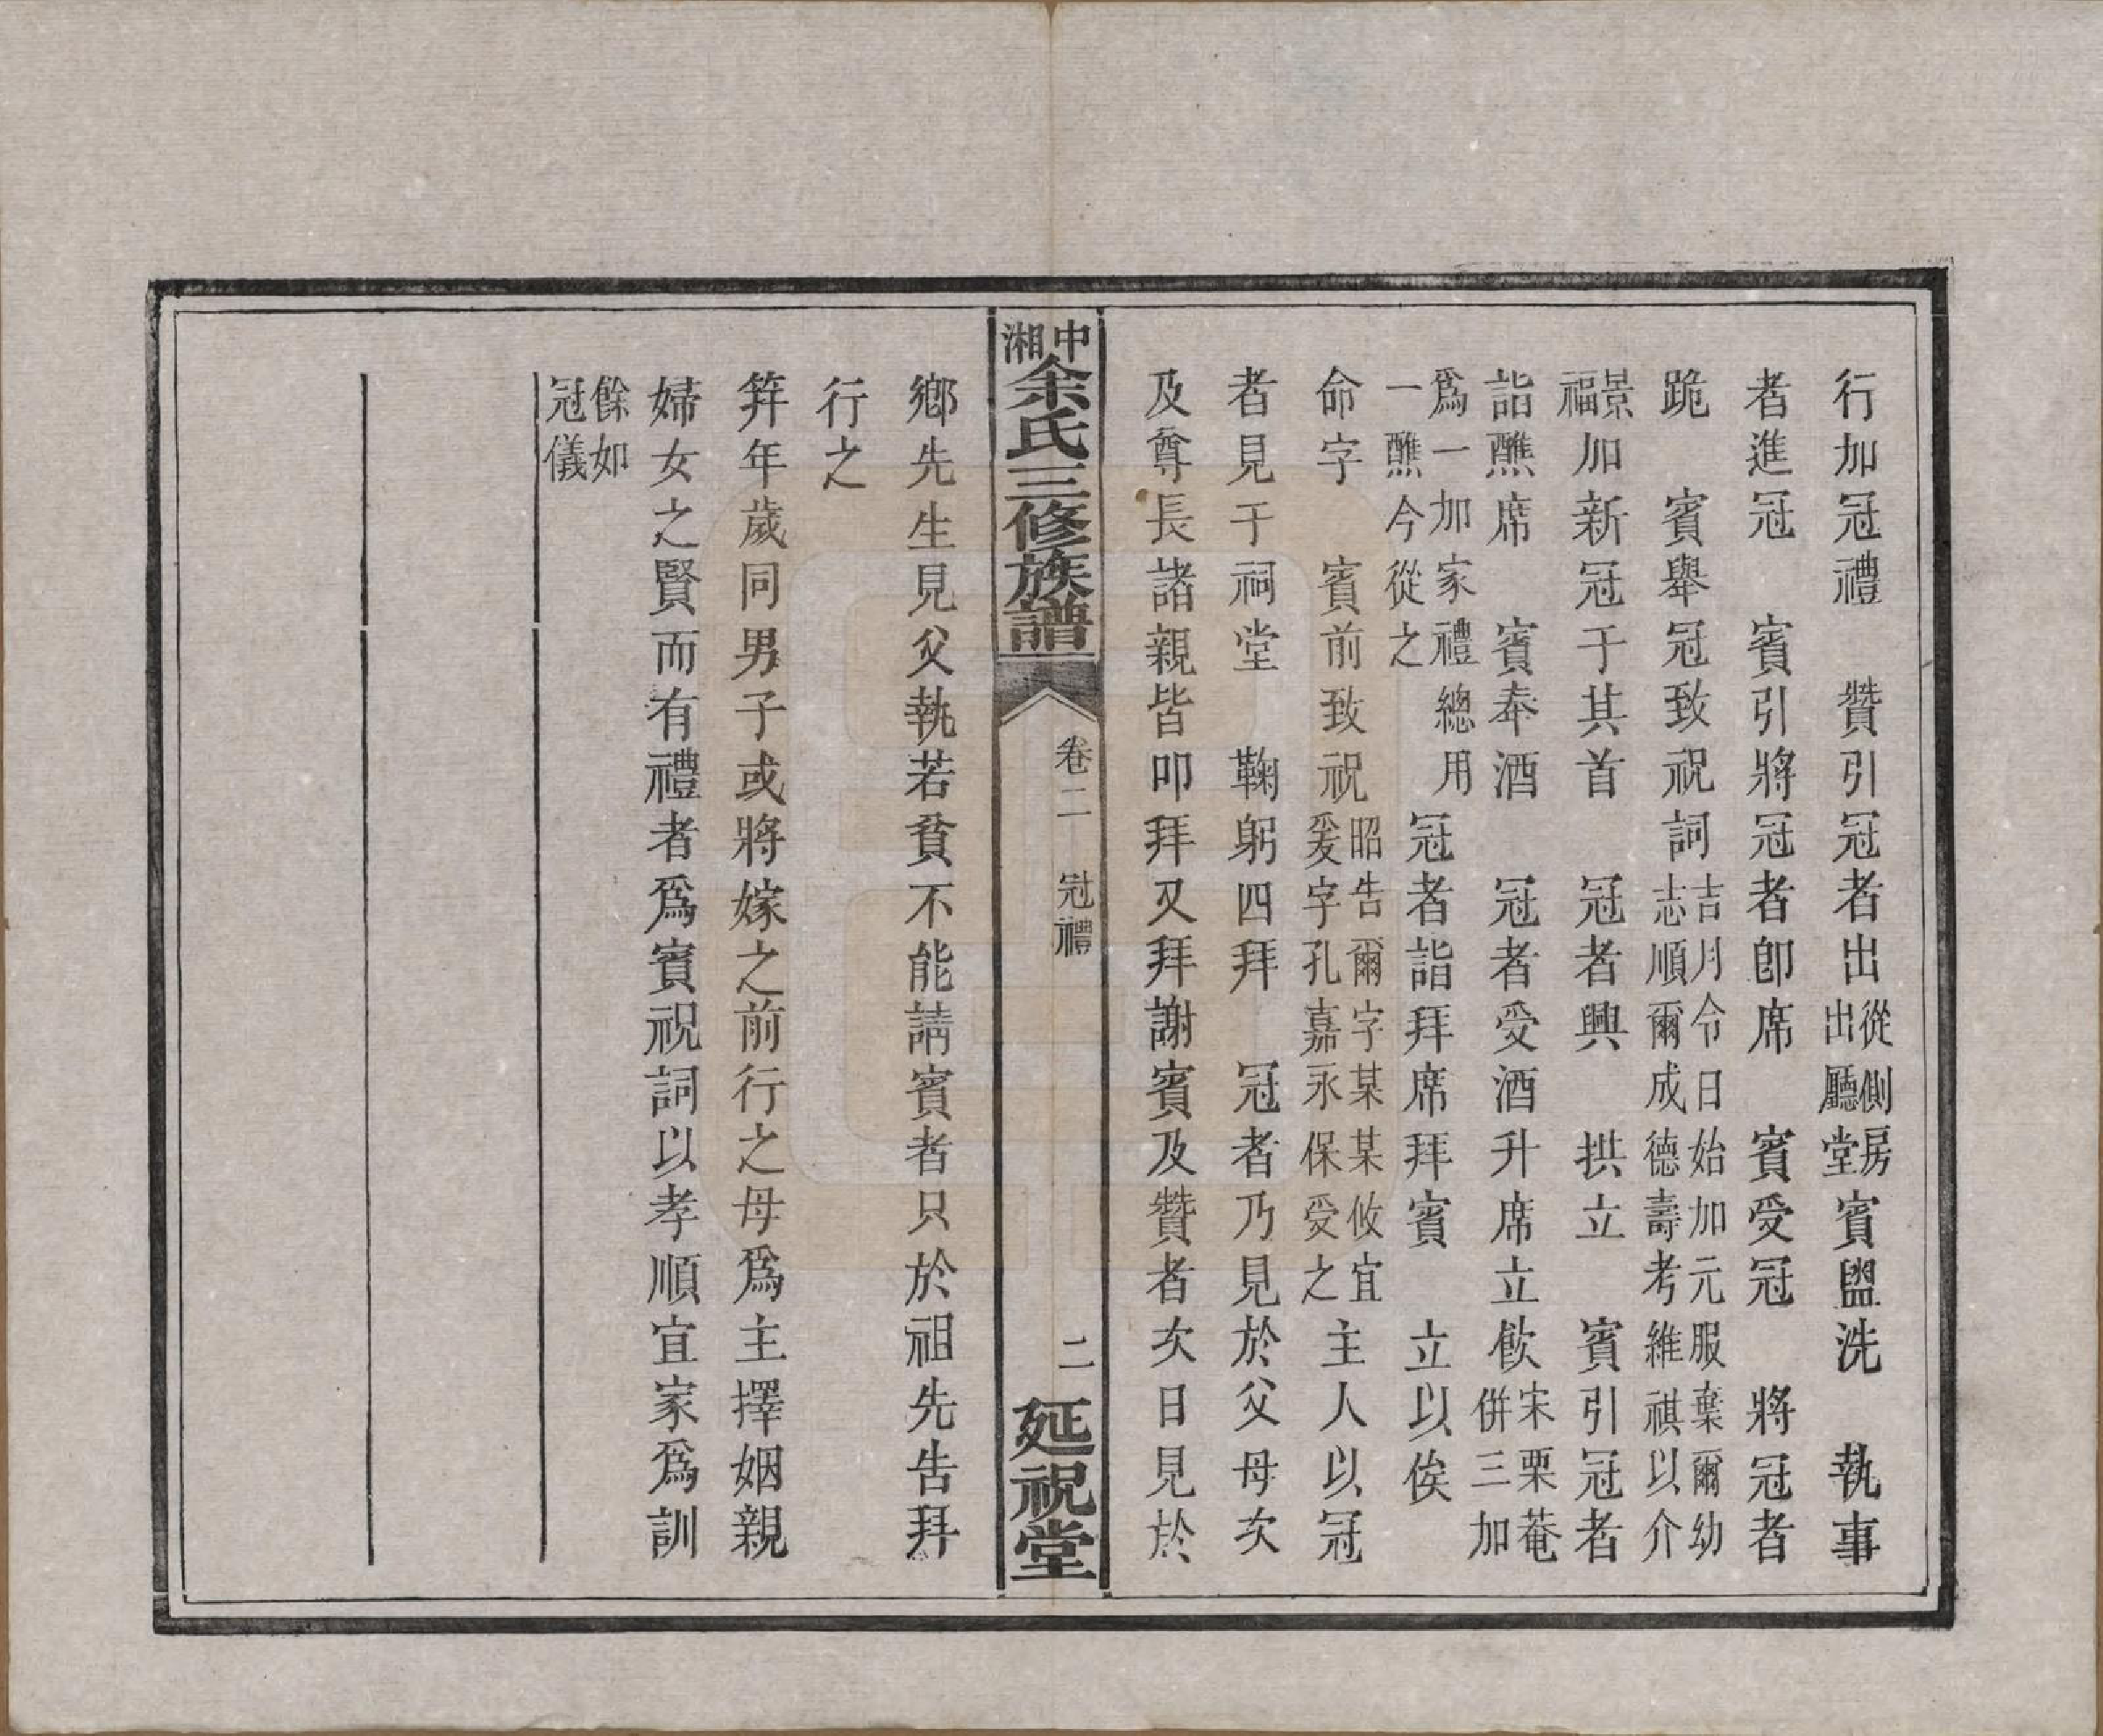 行加冠禮　贊引冠者出從側房出廳堂賓盥洗　執事
者進冠　賓引將冠者卽席　賓受冠　將冠者
跪　賓舉冠致祝詞吉月令日始加元服棄爾幼志順爾成德壽考維祺以介
景福加新冠于其首　冠者興　拱立　賓引冠者
詣醮席　賓奉酒　冠者受酒升席立飲宋栗菴併三加
爲一加家禮總用一醮今從之　冠者詣拜席拜賓　立以俟
命字　賓前致祝昭告爾字某某攸宜爰字孔嘉永保受之主人以冠
者見于祠堂　鞠躬四拜　冠者乃見於父母次
及尊長諸親皆叩拜又拜謝賓及贊者次日見於
中湘余氏三修族譜　卷二　冠禮　二　延祝堂
鄉先生見父執若貧不能請賓者只於祖先告拜
行之
笄年歲同男子或將嫁之前行之母爲主擇姻親
婦女之賢而有禮者爲賓祝詞以孝順宜家爲訓
餘如冠儀